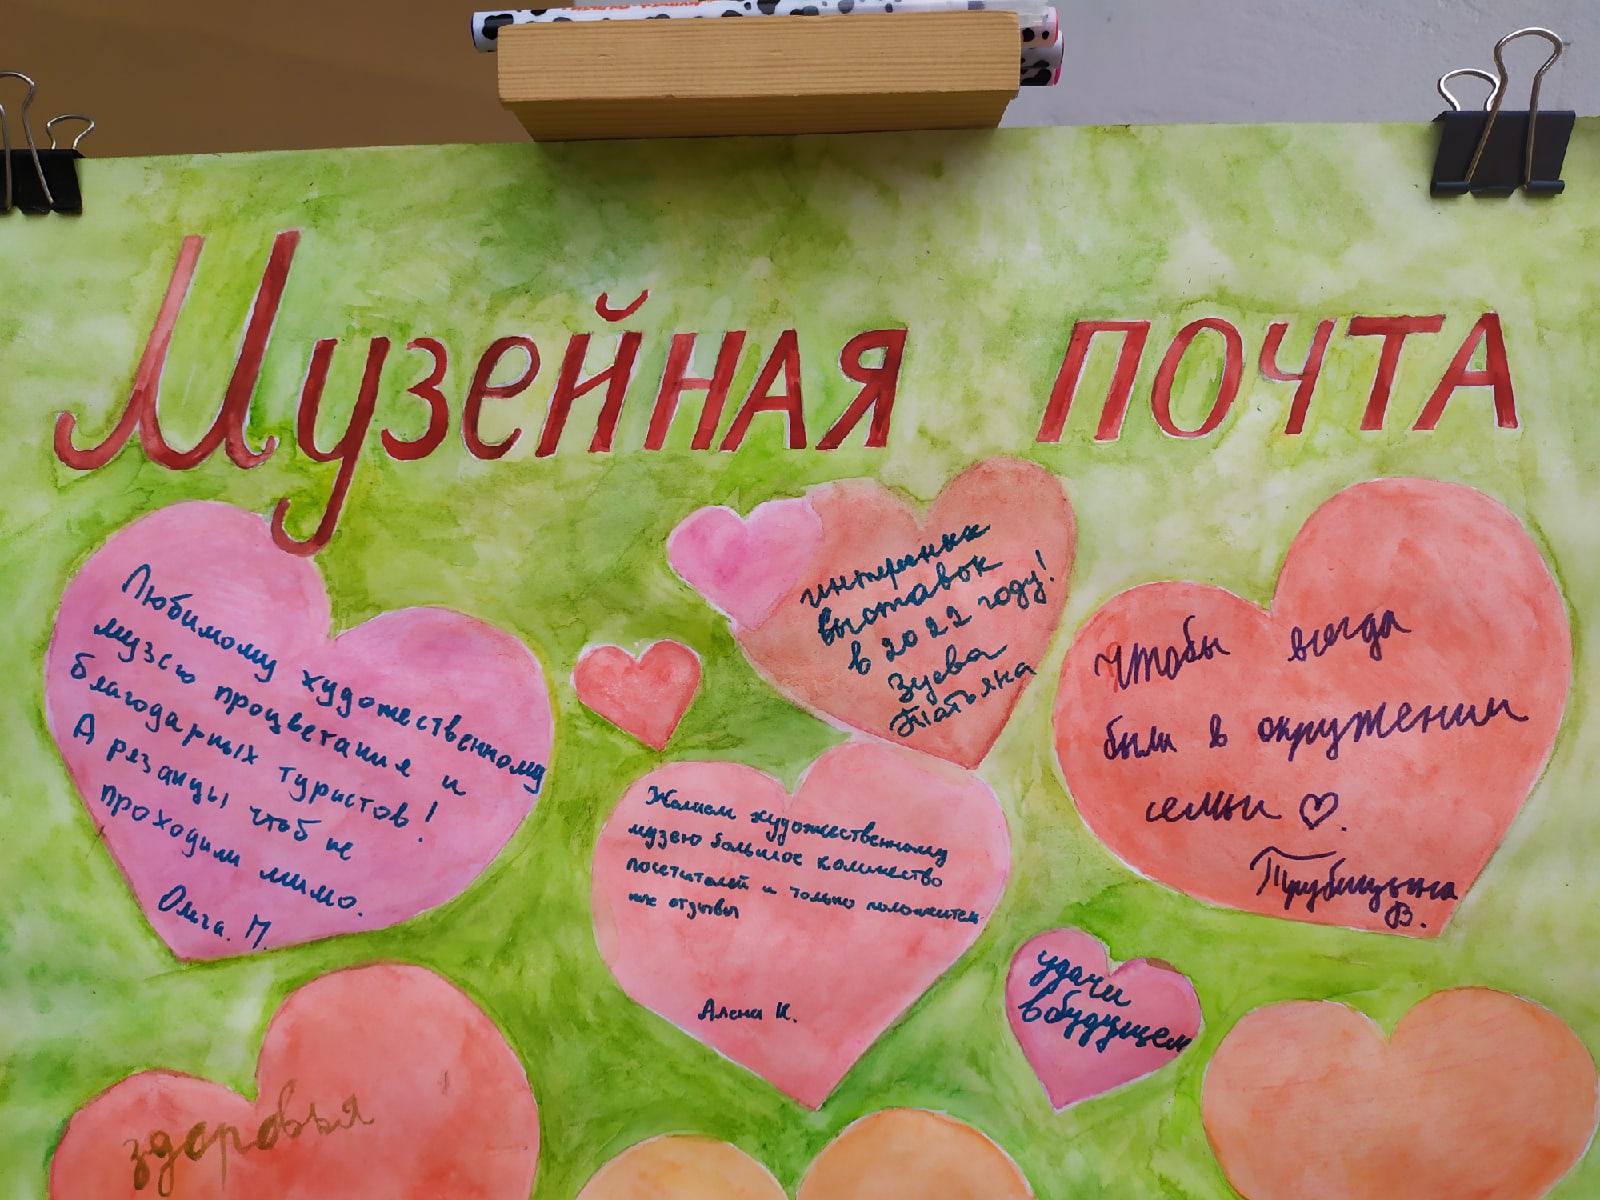 Музейная почта
Любимому художественному
музею процветания и
благодарных туристов!
А рязанцы чтоб не
проходили мимо.
Ольга. М.
интересных
выставок
в 2022 году!
Зуева
Татьяна
Чтобы всегда
были в окружении
семьи ♡.
Трубицына
В.
Желаем художественному
музею большое количество
посетителей и только положител
ные отзывы
Алена К.
удачи
в будущем
здоровья